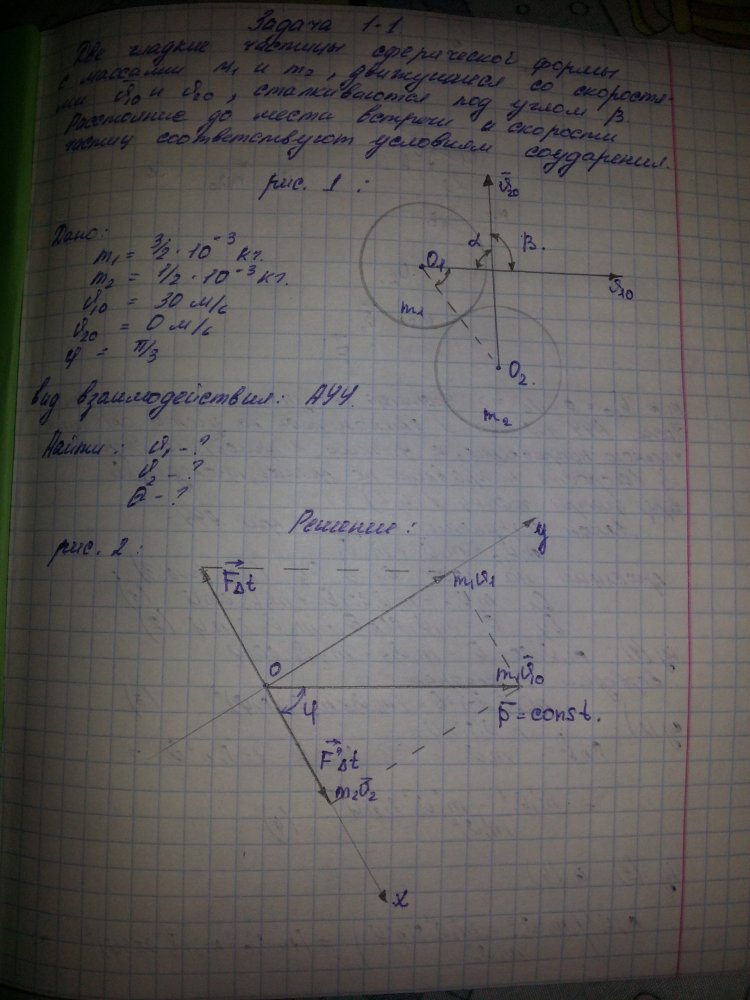 Задача 1-1
Две гладкие частицы сферической формы
с массами m₁ и m₂, движущиеся со скоростя-
ми υ̅₁₀ и υ̅₂₀, сталкиваются под углом β.
Расстояние до места встречи и скорости
частиц соответствуют условиям соударения.
рис. 1 :
υ̅₂₀
Дано:
m₁ = 3/2 · 10⁻³ кг.
α
β.
O₁
m₂ = 1/2 · 10⁻³ кг.
υ̅₁₀
υ₁₀ = 30 м/с
m₁
υ₂₀ = 0 м/с
φ = π/3
O₂.
вид взаимодействия: АУУ.
m₂
Найти: υ₁ - ?
υ₂ - ?
Q - ?
Решение:
рис. 2 :
y
F⃗Δt
m₁υ̅₁
O
m₁υ̅₁₀
φ
p̅ = const.
F⃗'Δt
m₂υ̅₂
x